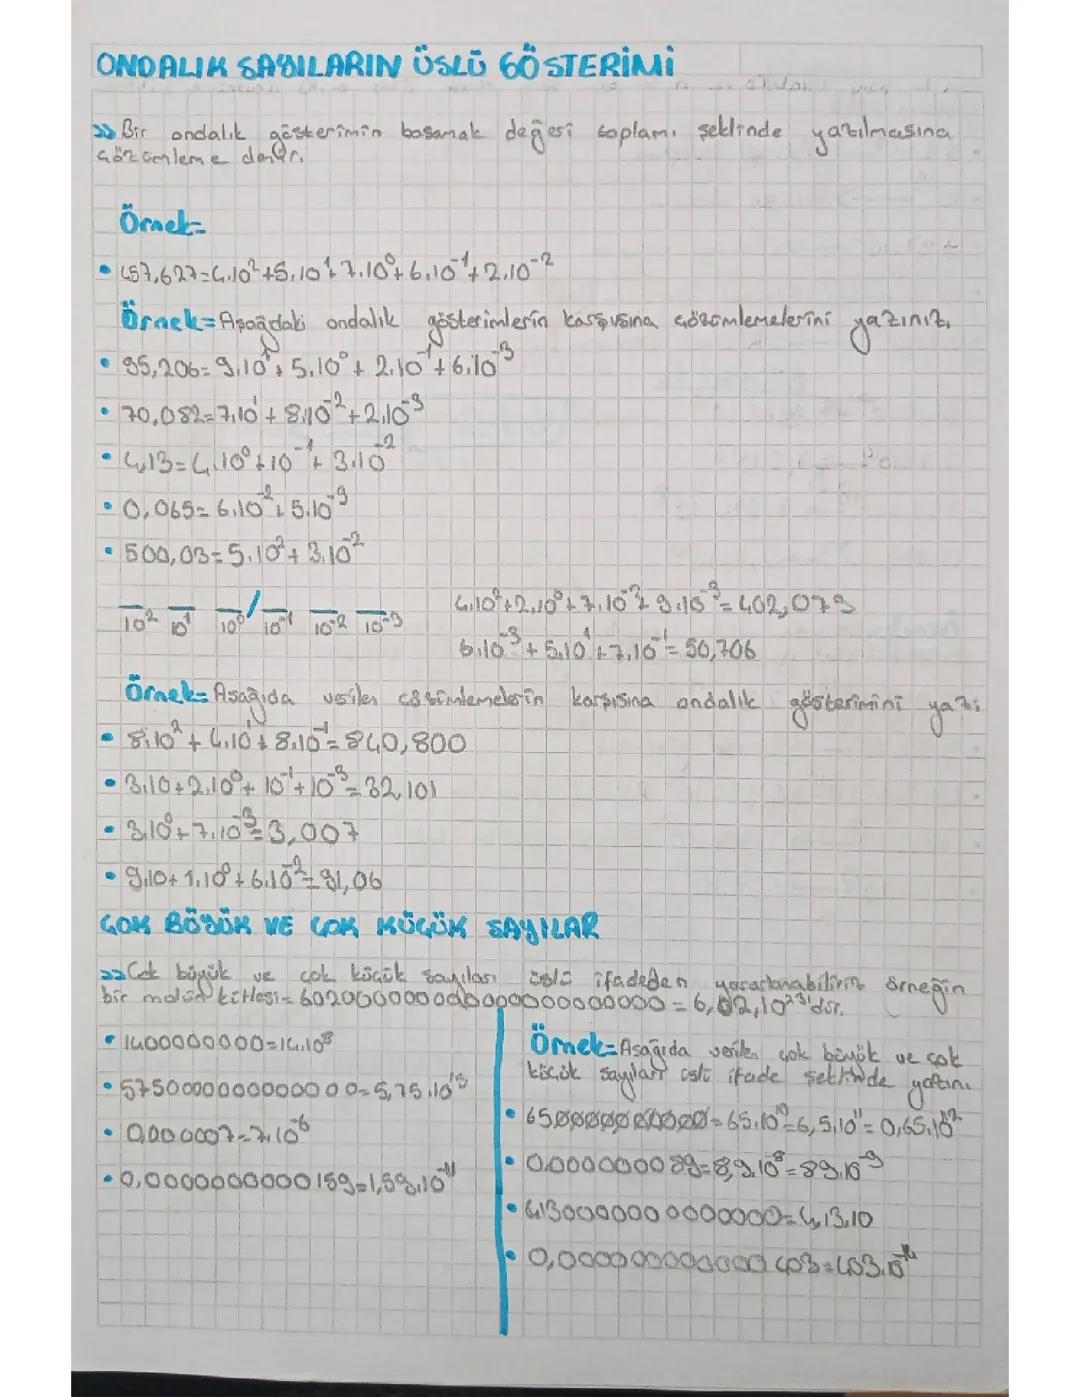 ONDALIK SAYILARIN ÜSLÜ GÖSTERİMİ
>> Bir ondalık gösterimin basamak değeri toplamı şeklinde yazılmasına
çözümleme denir.
Örnek=
• 457,627=4.10²+5.10¹+7.10⁰+6.10⁻¹+2.10⁻²
Örnek= Aşağıdaki ondalık gösterimlerin karşısına çözümlemelerini yazınız.
• 95,206=9.10¹+5.10⁰+2.10⁻¹+6.10⁻³
• 70,082=7.10¹+8.10⁻²+2.10⁻³
• 4,13=4.10⁰+10⁻¹+3.10⁻²
• 0,065=6.10⁻²+5.10⁻³
• 500,03=5.10²+3.10⁻²
10² 10¹ 10⁰ / 10⁻¹ 10⁻² 10⁻³
4.10²+2.10⁰+7.10⁻²+9.10⁻³=402,079
6.10⁻³+5.10¹+7.10⁻¹=50,706
Örnek= Aşağıda verilen çözümlemelerin karşısına ondalık gösterimini yazı
• 8.10²+4.10¹+8.10⁻¹=840,800
• 3.10+2.10⁰+10⁻¹+10⁻³=32,101
• 3.10⁰+7.10⁻³=3,007
• 9.10+1.10⁰+6.10⁻²=91,06
ÇOK BÜYÜK VE ÇOK KÜÇÜK SAYILAR
>> Çok büyük ve çok küçük sayıları üslü ifadeden yararlanabiliriz örneğin
bir molün kütlesi=602000000000000000000000=6,02.10²³'dür.
• 1400000000=14.10⁸
• 5750000000000000=5,75.10¹⁵
• 0,000007=7.10⁻⁶
• 0,0000000000159=1,59.10⁻¹¹
Örnek= Aşağıda verilen çok büyük ve çok
küçük sayıları üslü ifade şeklinde yazını
• 650000000000=65.10¹⁰=6,5.10¹¹=0,65.10¹²
• 0,000000089=8,9.10⁻⁸=89.10⁻⁹
• 4130000000000000=4,13.10
• 0,00000000000403=403.10⁻¹⁴